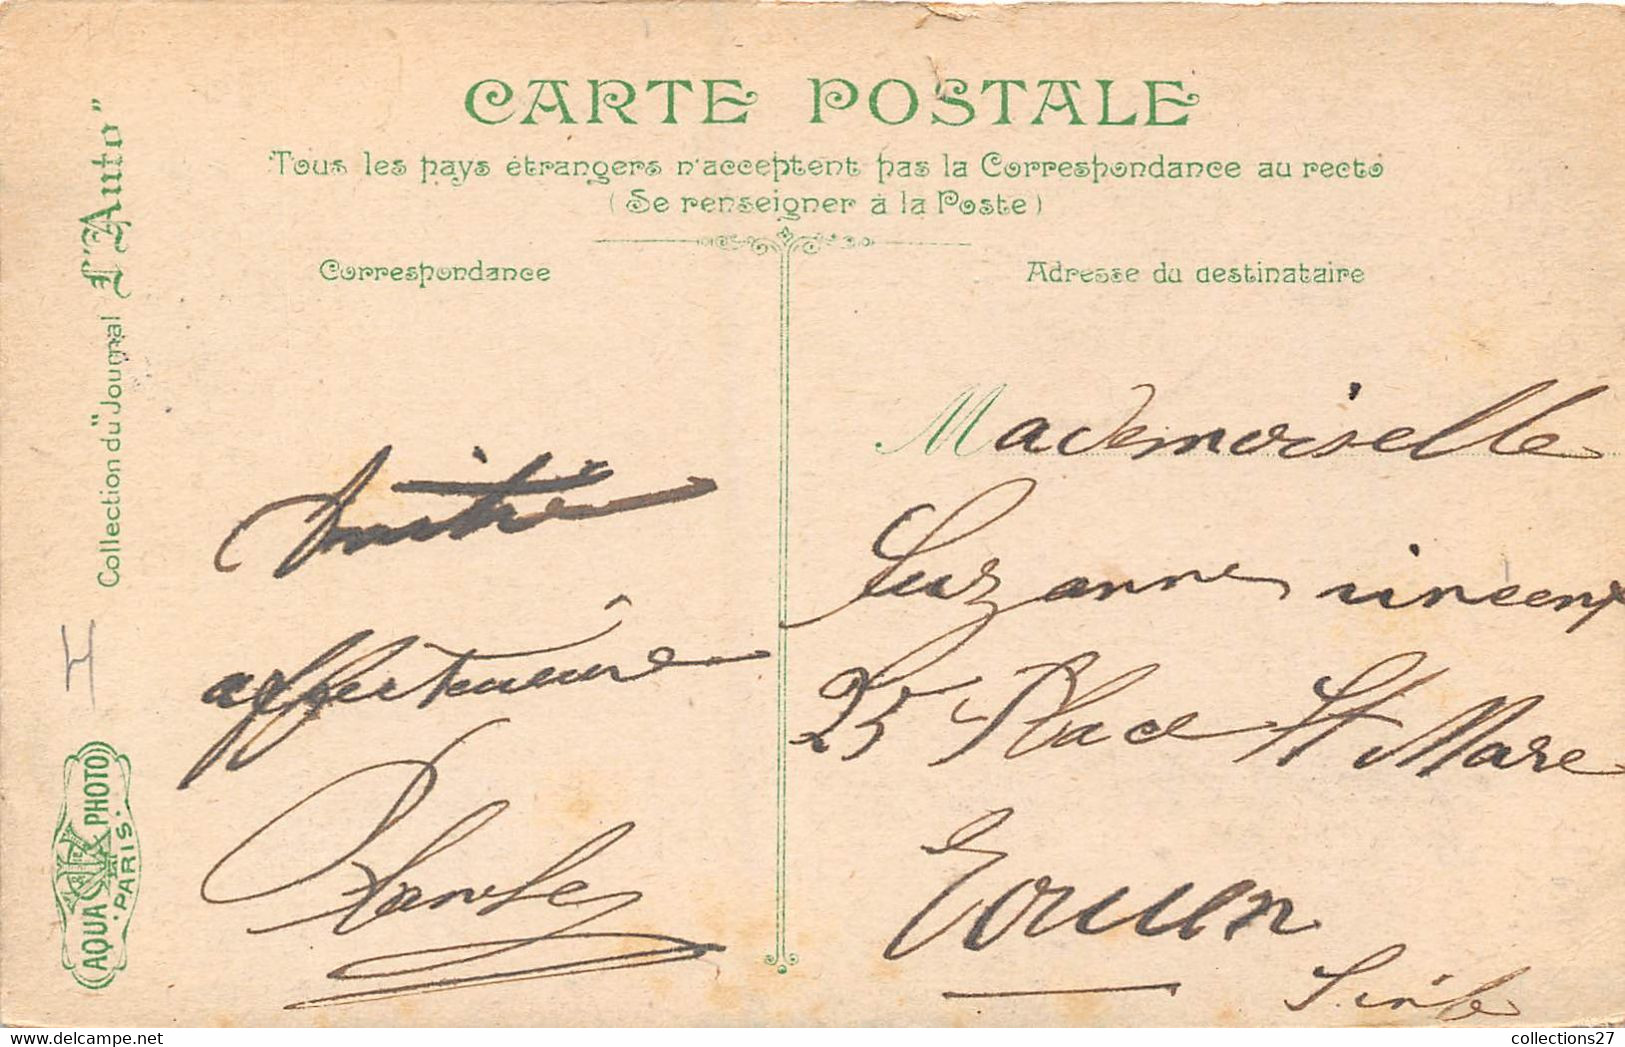 CARTE POSTALE
Tous les pays étrangers n'acceptent pas la Correspondance au recto
(Se renseigner à la Poste)
Correspondance
Adresse du destinataire
Collection du "Journal L'Auto"
AQUA PHOTO
PARIS
H
Amitié
affectueuse
Mademoiselle
Suzanne vincent
25 Place St Marc
Rouen
S. infe
collections27